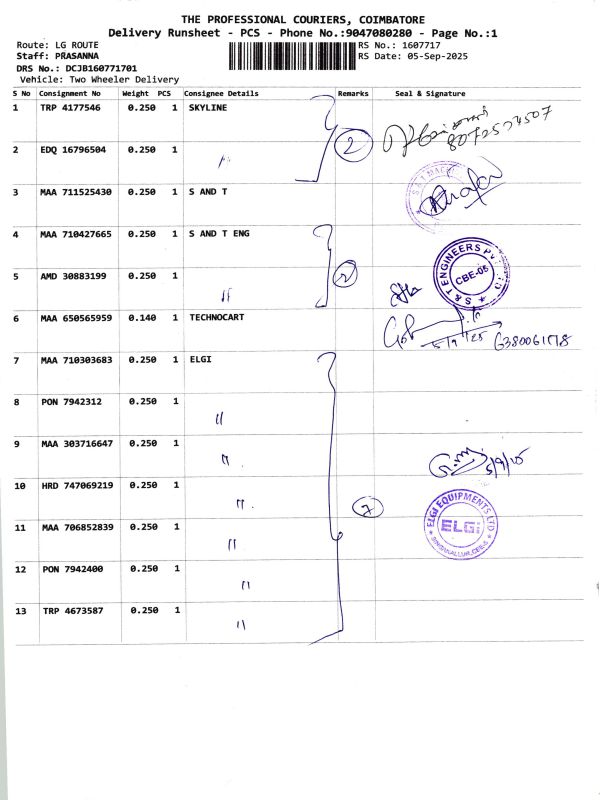 THE PROFESSIONAL COURIERS, COIMBATORE
Delivery Runsheet - PCS - Phone No.:9047080280 - Page No.:1
Route: LG ROUTE RS No.: 1607717
Staff: PRASANNA RS Date: 05-Sep-2025
DRS No.: DCJB160771701
Vehicle: Two Wheeler Delivery
S No Consignment No Weight PCS Consignee Details Remarks Seal & Signature
1 TRP 4177546 0.250 1 SKYLINE
2 EDQ 16796504 0.250 1 〃 2
3 MAA 711525430 0.250 1 S AND T
4 MAA 710427665 0.250 1 S AND T ENG
S & T ENGINEERS PVT LTD
CBE-05
5 AMD 30883199 0.250 1 〃 2
6 MAA 650565959 0.140 1 TECHNOCART
5/9/25
7 MAA 710303683 0.250 1 ELGI
8 PON 7942312 0.250 1 〃
9 MAA 303716647 0.250 1 〃
5/9/25
10 HRD 747069219 0.250 1 〃 7
ELGI EQUIPMENTS LTD
ELGI
SINGANALLUR, CBE-5
11 MAA 706852839 0.250 1 〃
12 PON 7942400 0.250 1 〃
13 TRP 4673587 0.250 1 〃